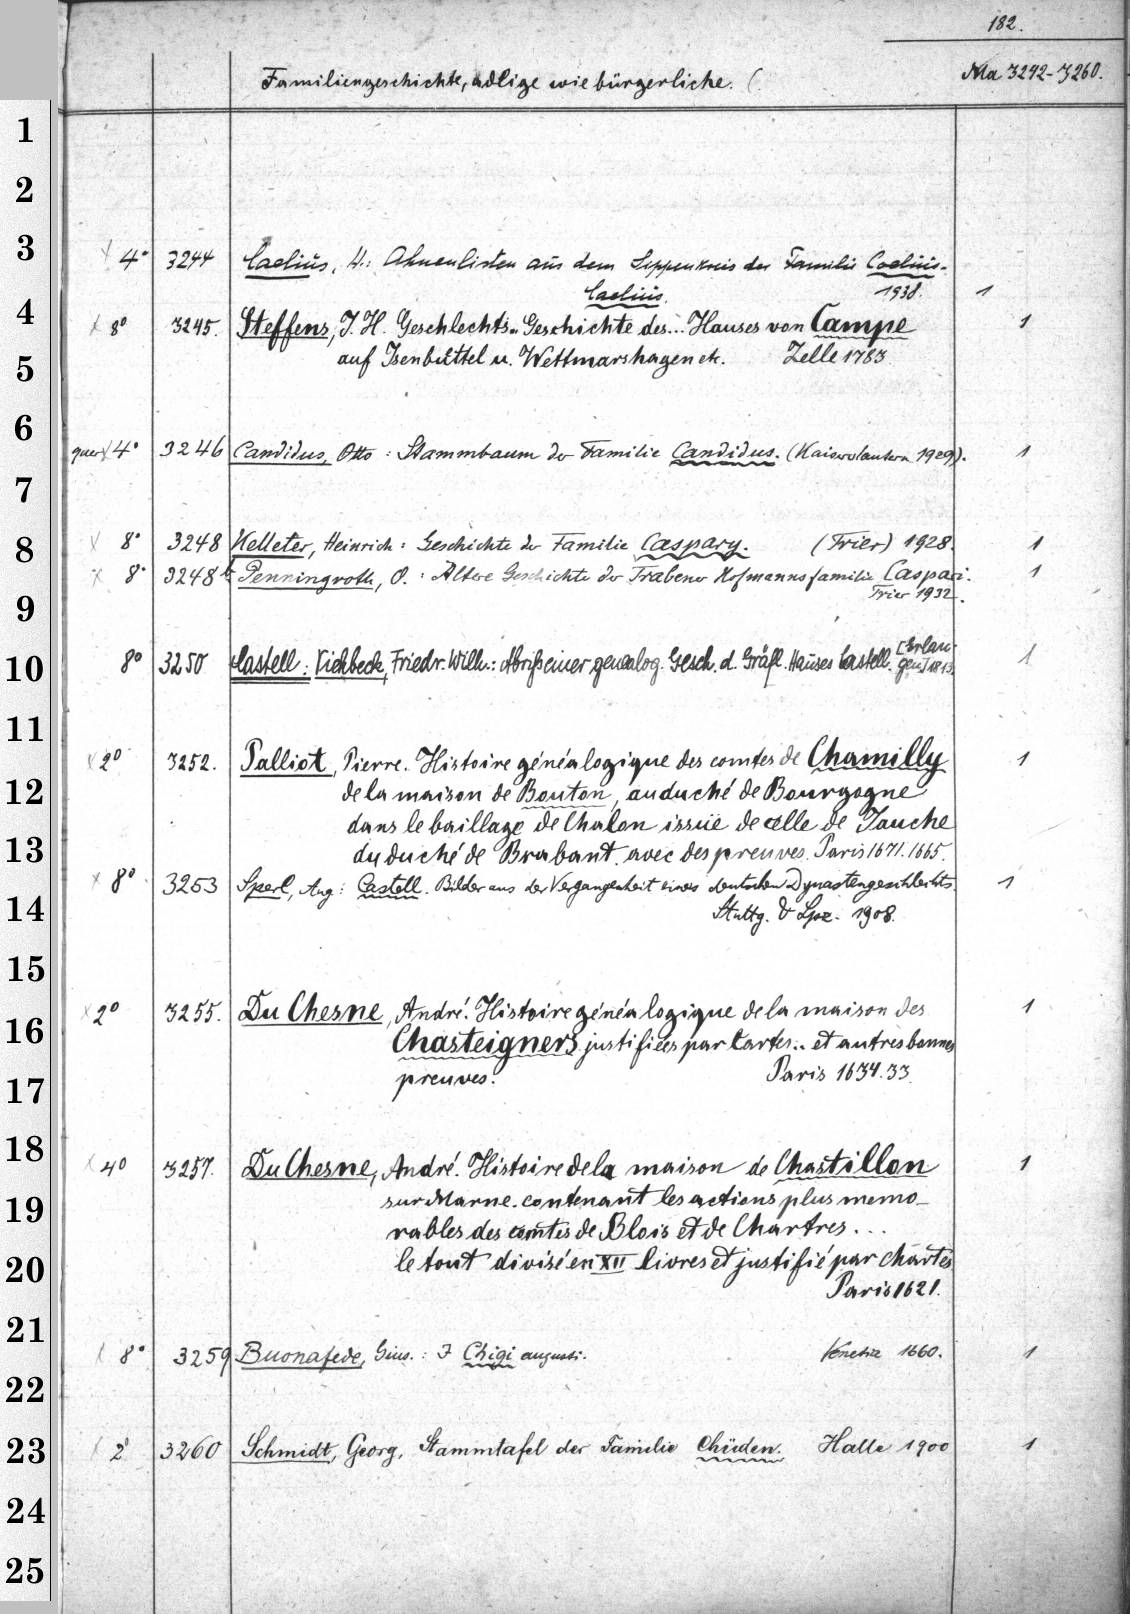 182.
Familiengeschichte, adlige wie bürgerliche. (
Ma 3242-3260.
1
2
3
x 4° 3244 Caelius, H.: Ahnenlisten aus dem Sippenkreis der Familie Coelius-
Caelius. 1938. 1
4
x 8° 3245. Steffens, J. H. Geschlechts-Geschichte des... Hauses von Campe 1
auf Isenbüttel u. Wettmarshagen etc. Zelle 1783
5
6
quer x 4° 3246 Candidus, Otto: Stammbaum der Familie Candidus. (Kaiserslautern 1929). 1
7
8
x 8° 3248 Kelleter, Heinrich: Geschichte der Familie Caspary. (Trier) 1928. 1
x 8° 3248b Penningroth, O.: Ältere Geschichte der Trabener Hofmannsfamilie Caspari. 1
Trier 1932.
9
10
8° 3250 Castell: Viehbeck, Friedr. Wilh.: Abriß einer genealog. Gesch. d. Gräfl. Hauses Castell. [Erlan- 1
gen] 1813.
11
x 2° 3252. Palliot, Pierre. Histoire généalogique des comtes de Chamilly 1
12
de la maison de Bouton, au duché de Bourgogne
dans le baillage de Chalon issue de celle de Jauche
13
du duché de Brabant. avec des preuves. Paris 1671. 1665.
x 8° 3253 Sperl, Aug: Castell. Bilder aus der Vergangenheit eines deutschen Dynastengeschlechts. 1
14
Stuttg. & Lpz. 1908.
15
x 2° 3255. Du Chesne, André. Histoire généalogique de la maison des 1
16
Chasteigners justifiées par Cartes.. et autres bonnes
preuves. Paris 1634. 33.
17
18
x 4° 3257. Du Chesne, André. Histoire de la maison de Chastillon 1
sur Marne. contenant les actions plus memo-
19
rables des comtes de Blois et de Chartres...
le tout divisé en XII livres et justifié par chartes
20
Paris 1621.
21
x 8° 3259 Buonafede, Gius.: I Chigi augusti. Venetia 1660. 1
22
23
x 2° 3260 Schmidt, Georg, Stammtafel der Familie Chüden. Halle 1900 1
24
25